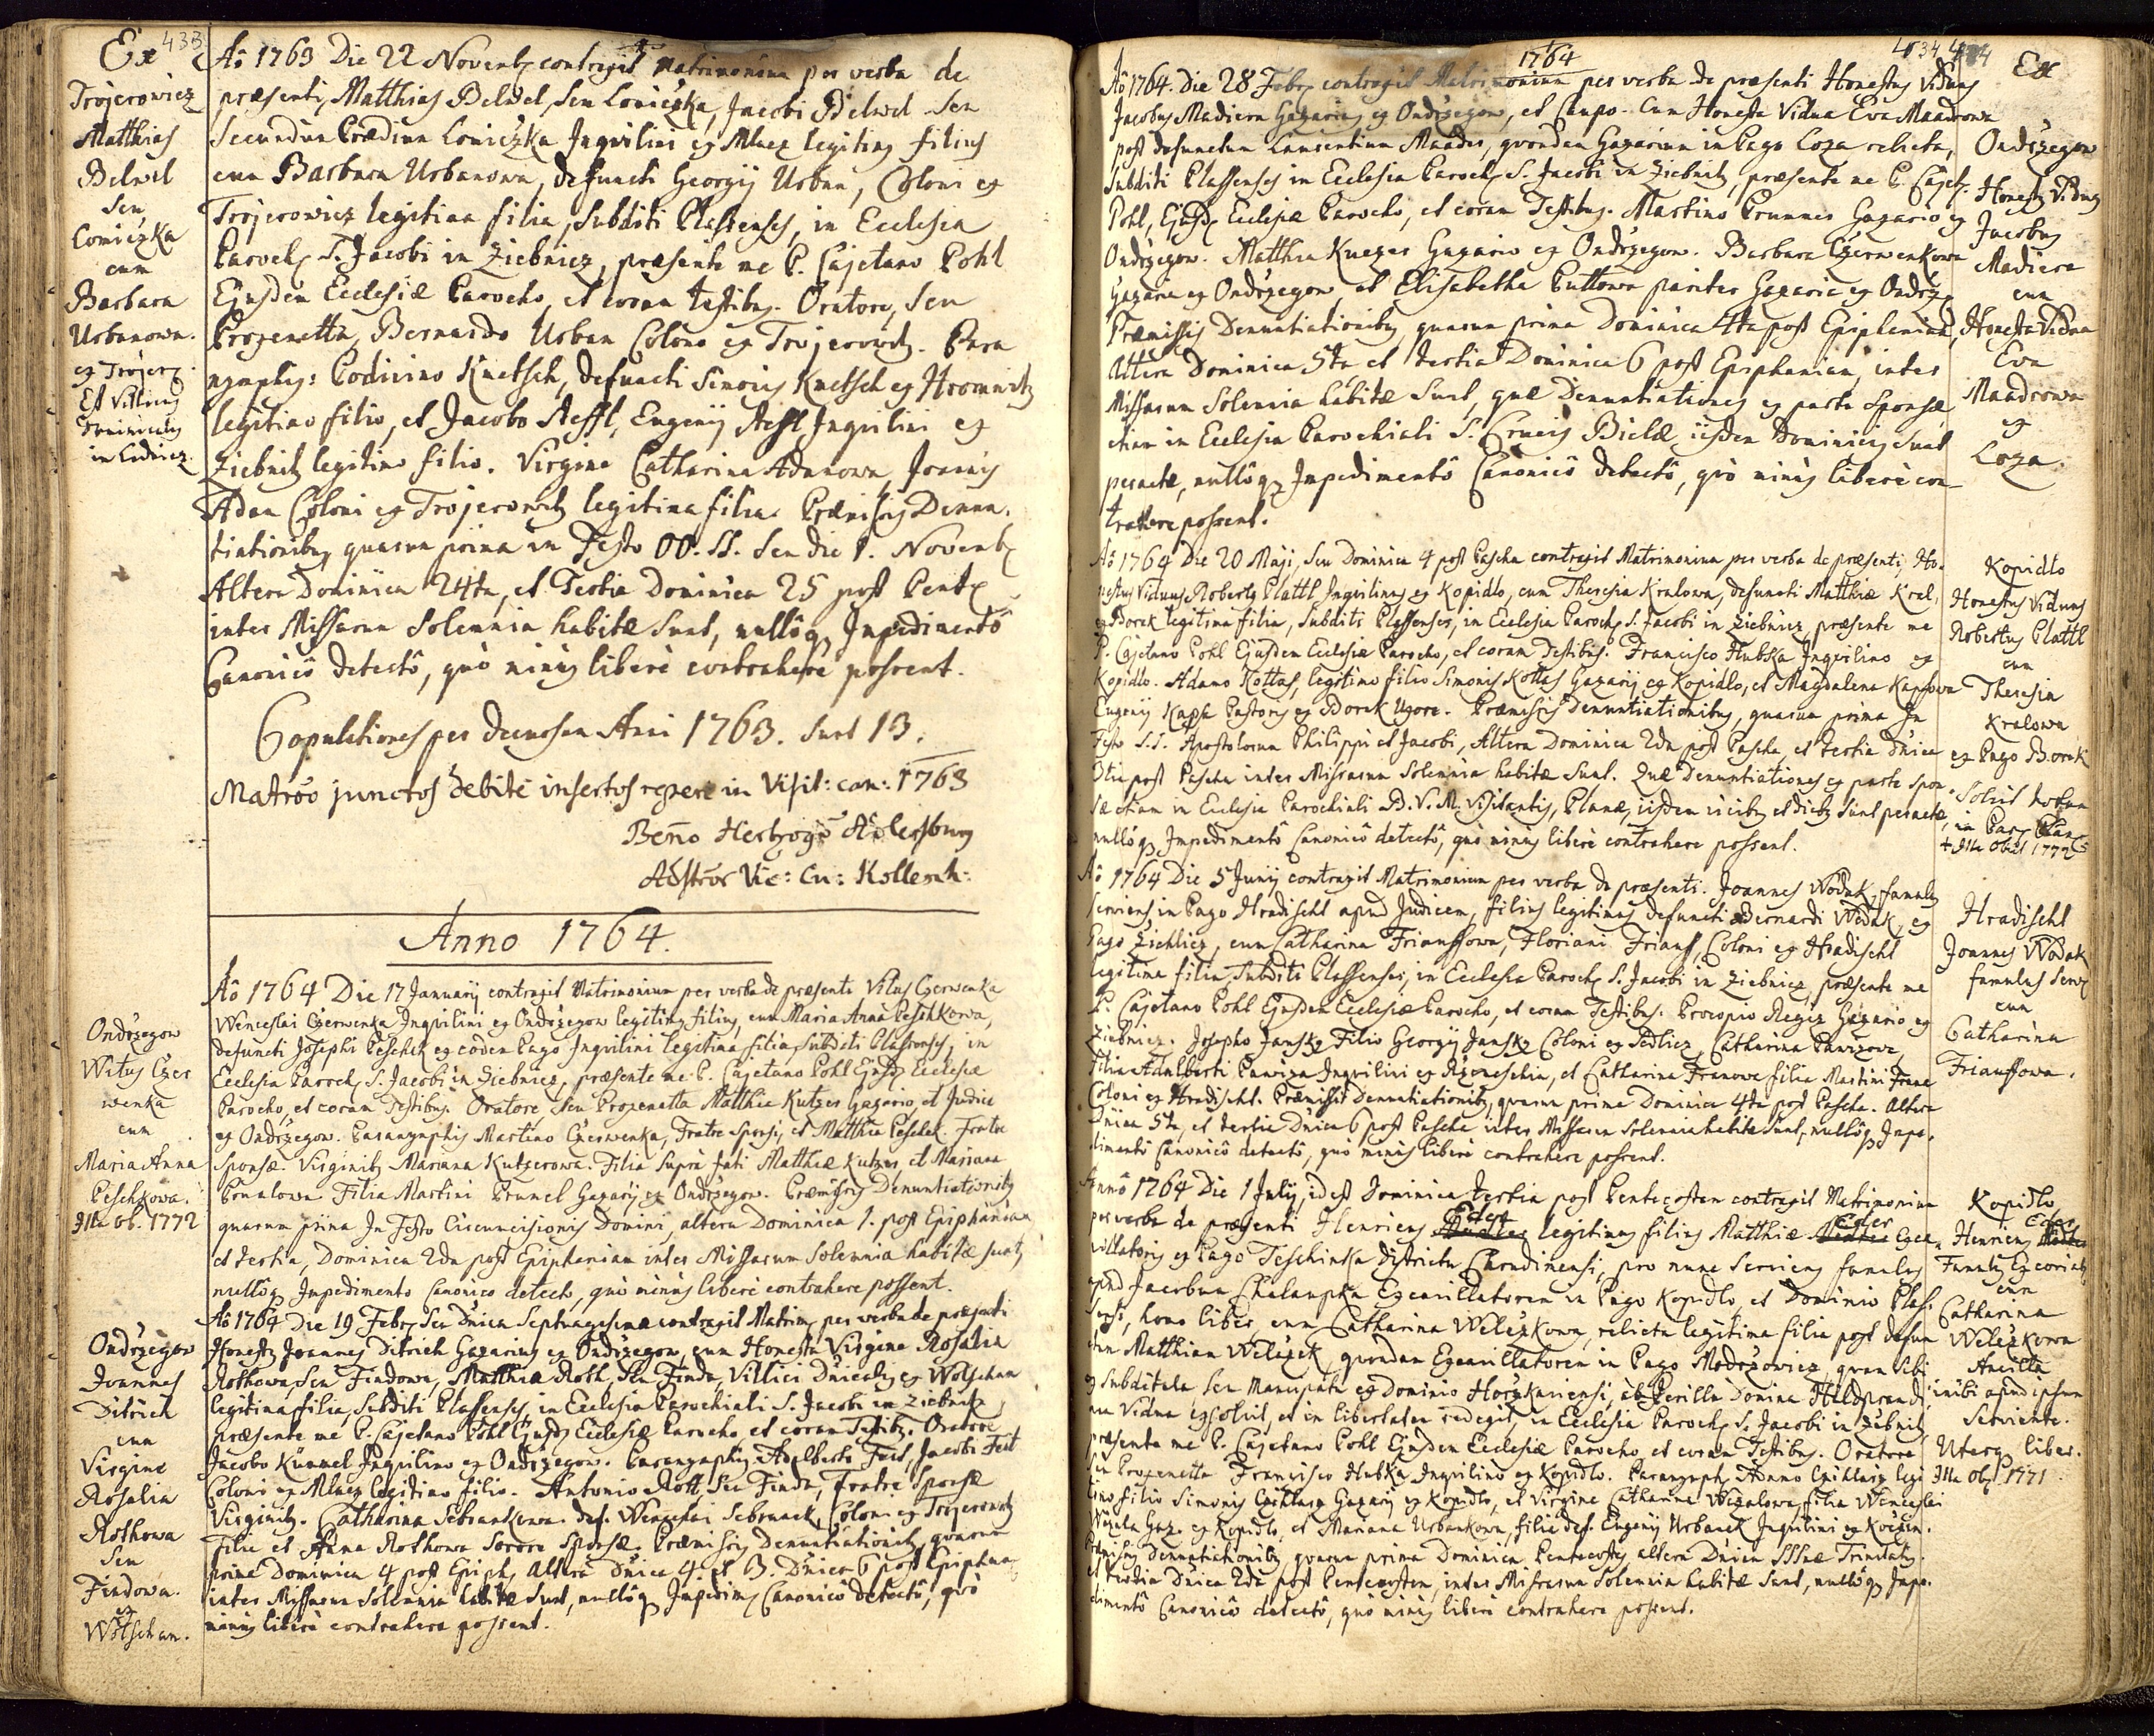 433
Ex
Trojerowicz
Matthias
Belwel
seu
Loniczka
cum
Barbara
Urbanowa.
ex Trojerz.
Est Villicus
Dominicus
in Lednicz.
Aô 1763 Die 22 Novembr contraxit Matrimonium per verba de
præsenti, Matthias Belwel, seu Loniczka, Jacobi Belwel seu
secundum Prædium Loniczka Inqvilini ex Mlacz legitimus filius
cum Barbara Urbanowa, defuncti Georgij Urban, Coloni ex
Trojerowicz legitima filia, subditi Plassenses, in Ecclesia
Paroch. S. Jacobi in Ziebnicz, præsente me P. Cajetano Pohl
Ejusdem Ecclesiæ Parocho, et coram testibus. Oratore, seu
Proxenetta, Bernardo Urban Colono ex Trojerowitz. Para
nymphis: Podivino Knetsch, defuncti Simonis Knetsch ex Hromnitz
legitimo filio, et Jacobo Aeffl, Eugenij Aeffl Inqvilini ex
Ziebnitz legitimo filio. Virgine Catharina Adamowa, Joannis
Adam Coloni ex Trojerowitz legitima filia. Præmissis Denun-
tiationibus, quarum prima in Festo OO. SS. seu die 1. Novembr
Altera Dominica 24ta, et Tertia Dominica 25 post Pent.
inter Missarum solemnia habitæ sunt, nullôq Impedimentô
Canonicô detectô, quò minus liberè contrahere possent.
Copulationes per decursum Anni 1763. sunt 13.
Matrio junctos debitè insertos reperi in Visit: can: 1763
Beno Hertzog ab Adlersburg
Adstror Vic: Cu: Kollesch:
Anno 1764.
Ondrzegow
Witus Czer
wenka
cum
Maria Anna
Peschkowa.
Illa ob. 1772
Aô 1764 Die 17 Januarij contraxit Matrimonium per verba de præsenti Vitus Czerwenka
Wenceslai Czerwenka Inqvilini ex Ondrzegow legitimus filius, cum Maria Anna Peschkowa,
defuncti Josephi Peschek ex eodem Pago Inqvilini legitima filia, subditi Plassenses, in
Ecclesia Paroch. S. Jacobi in Ziebnicz, præsente me P. Cajetano Pohl Ejusd. Ecclesiæ
Parocho, et coram Testibus. Oratore seu Proxenetta Matthia Kutzer Gazario, et Judice
ex Ondrzegow. Paranymphis Martino Czerwenka, Fratre sponsi, et Matthia Peschek Fratre
sponsæ. Virginibus Mariana Kutzerowa. Filia supra fati Matthiæ Kutzer, et Mariana
Prumlowa Filia Martini Prumel Gazarij ex Ondrzegow. Præmissis Denuntiationibus
quarum prima In Festo Circumcisionis Domini, altera Dominica 1. post Epiphaniam
et tertia, Dominica 2da post Epiphaniam inter Missarum solemnia habitæ sunt,
nullôq Impedimento Canonico detecto, quò minus liberè contrahere possent.
Ondrzegow
Joannes
Ditrich
cum
Virgine
Rosalia
Rothowa
seu
Findowa.
ex
Wotschan.
Aô 1764 Die 19 Febr. seu Dnica Septuagesimæ contraxit Matrim. per verba de præsenti
Honestus Joannes Ditrich Gazarius ex Ondrzegow, cum Honesta Virgine Rosalia
Rothowa, seu Findowa, Matthiæ Roth, seu Finda, Villici Dnicalis ex Wotschan
legitima filia, subditi Plassenses, in Ecclesia Parochiali S. Jacobi in Ziebnitz,
præsente me P. Cajetano Pohl Ejusd. Ecclesiæ Parocho et coram Testibus. Oratore
Jacobo Kümmel Inqvilino ex Ondrzegow. Paranymphis Adalberto Feit, Jacobi Feit
Coloni ex Mlacz legitimo filio. Antonio Roth, seu Finda, Fratre sponsæ
Virginibus. Catharina Sebrankowa def. Wenceslai Sebranek, Coloni ex Trojerowitz
Filia et Anna Rothowa Sorore sponsæ. Præmissis Denuntiationibus, quarum
prima Dominica 4 post Epiph. altera Dnica 4. et 3. Dnica 6 post Epiphan
inter Missarum solemnia habitæ sunt, nullôq Impedim. Canonicô detectô, quò
minus liberè contrahere possent.
1764
434
Ex
Aô 1764. Die 28 Febr. contraxit Matrimonium per verba de præsenti Honestus Viduus
Jacobus Madiera Gazarius ex Ondrzegow, et Caupo. Cum Honesta Vidua Eva Maadrowa
post defunctum Laurentium Maader, quondam Gazarium in Pago Loza relicta,
subditi Plassenses in Ecclesia Paroch. S. Jacobi in Ziebnitz, præsente me P. Cajet.
Pohl, Ejusd. Ecclesiæ Parocho, et coram Testibus. Martino Prummer Gazario ex
Ondrzegow. Matthia Kuczer Gazario ex Ondrzegow. Barbara Czerwenkowa
Gazaria ex Ondrzegow, et Elisabetha Puttowa pariter Gazaria ex Ondrz.
Præmissis Denuntiationibus, quarum prima Dominica 4ta post Epiphaniam,
Altera Dominica 5ta et tertia Dominica 6 post Epiphaniam, inter
Missarum solemnia habitæ sunt, quæ Denuntiationes ex parte sponsæ
etiam in Ecclesia Parochiali S. Crucis Bielæ iisdem Dominicis sunt
peractæ, nullôq Impedimentô Canonicô detectô, quò minus liberè con-
trahere possent.
Ondrzegow
Honestus Viduus
Jacobus
Madiera
cum
Honesta Vidua
Eva
Maadrowa
ex
Loza.
Aô 1764 Die 20 Maji, seu Dominica 4 post Pascha contraxit Matrimonium per verba de præsenti, Ho-
nestus Viduus Robertus Plattl Inqvilinus ex Kopidlo, cum Theresia Kralowa, defuncti Matthiæ Kral,
ex Borek legitima filia, subditi Plassenses, in Ecclesia Paroch. S. Jacobi in Ziebnicz præsente me
P. Cajetano Pohl Ejusdem Ecclesiæ Parocho, et coram Testibus. Francisco Hubka Inqvilino ex
Kopidlo. Adamo Kottas, legitimo filio Simonis Kottas Gazarij ex Kopidlo, et Magdalena Kapsowa
Eugenij Kapsa Pastoris ex Borek Uxore. Præmissis Denuntiationibus, quarum prima In
Festo S.S. Apostolorum Philippi et Jacobi, Altera Dominica 2da post Pascha, et tertia Dnica
3tia post Pascha inter Missarum solemnia habitæ sunt. Quæ Denuntiationes ex parte spon-
sæ etiam in Ecclesia Parochiali B.V.M. Visitantis, Planæ, iisdem vicibus et diebus sunt peractæ,
nullôq Impedimentô Canonicô detectô, quò minus liberè contrahere possent.
Kopidlo
Honestus Viduus
Robertus Plattl
cum
Theresia
Kralowa
ex Pago Borek
in Par. Plan.
+ Illa obiit 1772
Aô 1764 Die 5 Junij contraxit Matrimonium per verba de præsenti. Joannes Wodak, famulus
serviens in Pago Hradischt apud Judicem, filius legitimus defuncti Bernardi Wodak, ex
Pago Zichlicz, cum Catharina Friauffowa, Floriani Friauff, Coloni ex Hradischt
legitima filia, subditi Plassenses, in Ecclesia Paroch. S. Jacobi in Ziebnicz præsente me
P. Cajetano Pohl Ejusdem Ecclesiæ Parocho, et coram Testibus. Procopio Regiz Gazario ex
Ziebnicz. Josepho Jansky Filio Georgij Jansky Coloni ex Sedlicz, Catharina Pawizova
Filia Adalberti Pawiza Inqvilini ex Rzoneschin, et Catharina Franowa filia Martini Frana
Coloni ex Hradischt. Præmissis Denuntiationibus, quarum prima Dominica 4ta post Pascha. Altera
Dnica 5ta, et tertia Dnica 6 post Pascha inter Missarum solemnia habitæ sunt, nullôq Impe-
dimentô Canonicô detectô, quò minus liberè contrahere possent.
Hradischt
Joannes Wodak
famulus serv.
cum
Catharina
Friauffowa.
Annô 1764 Die 1 Julij, id est Dominica tertia post Pentecosten contraxit Matrimonium
per verba de præsenti Henricus Eder legitimus filius Matthiæ Eder Exca-
villatoris ex Pago Teschinka districtu Chrudimensi, pro nunc serviens famulus
apud Jacobum Chalaupka Excavillatorem in Pago Kopidlo, et Dominio Plas-
sensi, homo liber, cum Catharina Welczkowa, relicta legitima filia post defun
ctum Matthiam Welczek, quondam Excavillatorem in Pago Modrzowicz, quam sibi
subditam seu mancipatam ex Dominio Horzkariensi, ab Perilla Domina Hildprandi-
na Vidua exsolvit, et in libertatem redegit, in Ecclesia Paroch. S. Jacobi in Zibnitz,
præsente me P. Cajetano Pohl Ejusdem Ecclesiæ Parocho et coram Testibus. Oratore
seu Proxenetta Francisco Hubka Inqvilino ex Kopidlo. Paranymph. Hanno Czihlarz legi
timo filio Simonis Czihlarz Gazarij ex Kopidlo, et Virgine Catharina Wozalowa, filia Wenceslai
Wozala Gaz. ex Kopidlo, et Mariana Urbankowa, filia def. Eugenij Urbanek Inqvilini ex Koczin.
Præmissis Denuntiationibus quarum prima Dominica Pentecostes, altera Dnica SSSmæ Trinitatis.
et tertia Dnica 2da post Pentecosten, inter Missarum solemnia habitæ sunt, nullôq Impe-
dimentô Canonicô detectô, quò minus liberè contrahere possent.
Kopidlo
Henricus Eder
Famulus Excoriat.
cum
Catharina
Welczkowa
Ancilla
inibi apud ipsum
serviente.
Uterq liber.
Illa ob. 1771